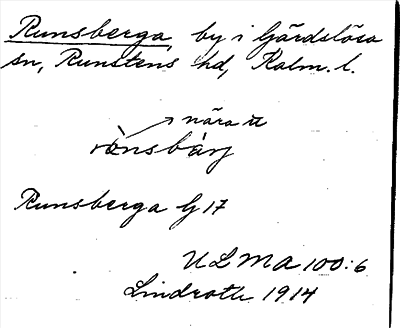 Runsberga, by i Gärdslösa
sn, Runstens hd, Kalm. l.
nära
Runsberga G 17
ULMA 100:6
Lindroth 1914